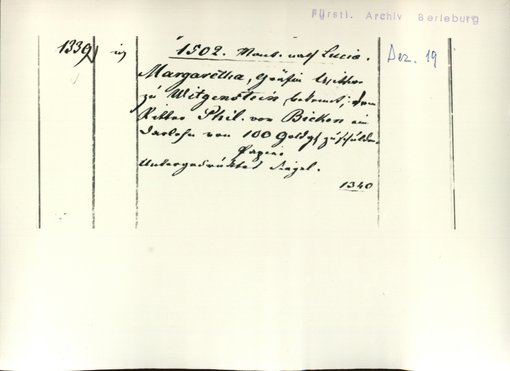 Fürstl. Archiv Berleburg
1339 in 1502. Mont. nach Lucia. Dez. 19
Margaretha, Gräfin Witwe
zu Witgenstein, bekennt, dem
Ritter Phil. von Bicken ein
Darlehn von 100 Goldg. zu schulden.
Papier
Untergedrücktes Siegel.
1340